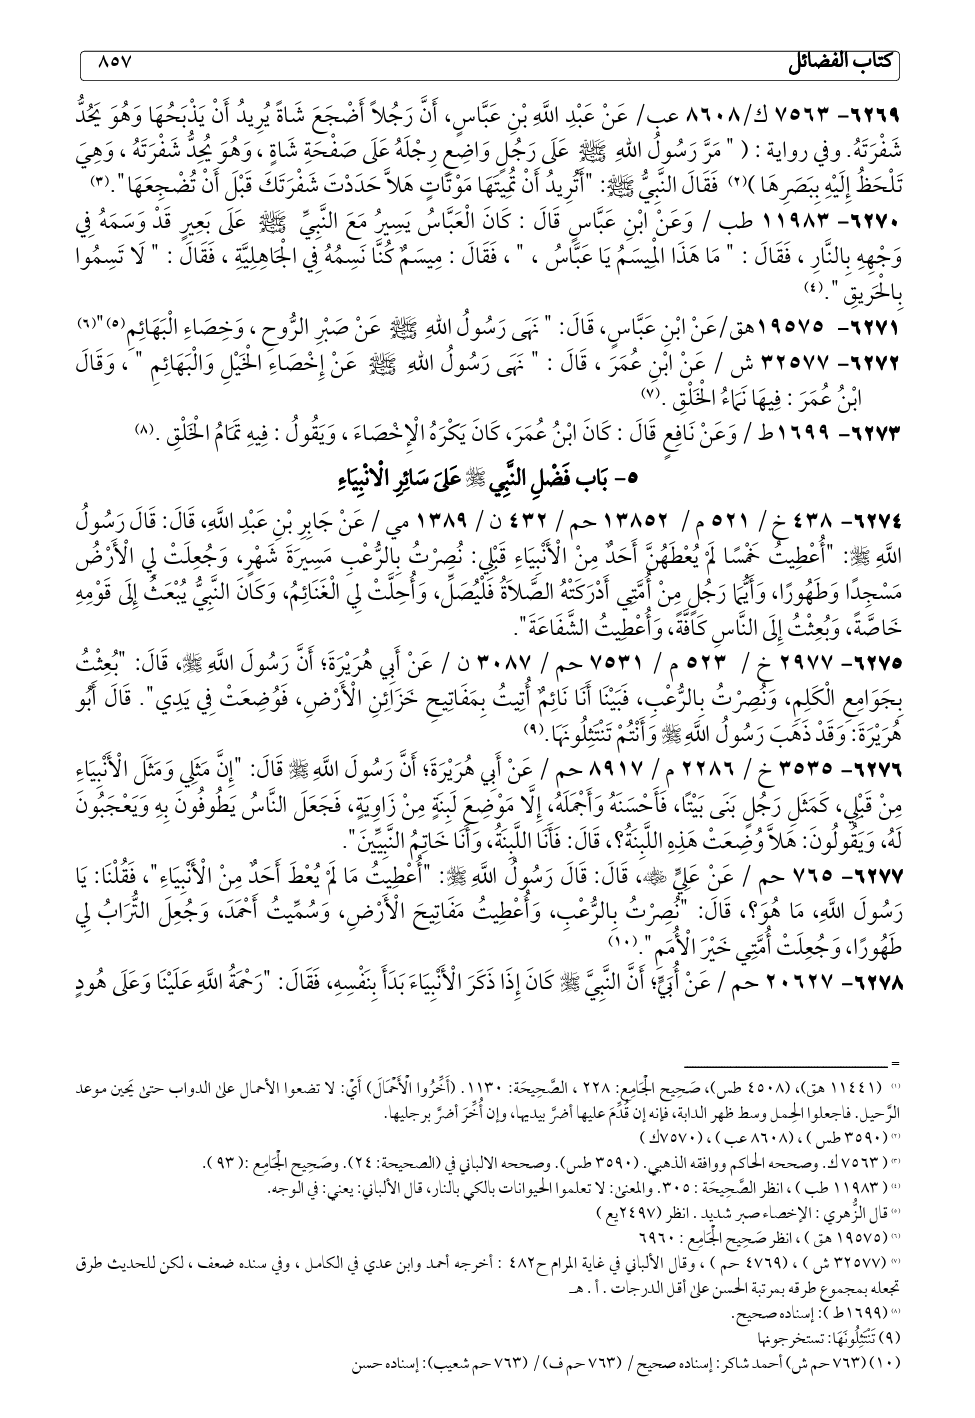 كتاب الفضائل ٨٥٧
٦٢٦٩- ٧٥٦٣ ك/ ٨٦٠٨ عب/ عَنْ عَبْدِ اللَّهِ بْنِ عَبَّاسٍ، أَنَّ رَجُلاً أَضْجَعَ شَاةً يُرِيدُ أَنْ يَذْبَحُهَا وَهُوَ يَحُدُّ
شَفْرَتَهُ. وفي رواية : ( " مَرَّ رَسُولُ اللهِ ﷺ عَلَى رَجُلٍ وَاضِعٍ رِجْلَهُ عَلَى صَفْحَةِ شَاةٍ ، وَهُوَ يَحُدُّ شَفْرَتَهُ ، وَهِيَ
تَلْحَظُ إِلَيْهِ بِبَصَرِهَا )(٢) فَقَالَ النَّبِيُّ ﷺ: "أَتُرِيدُ أَنْ تُمِيتَهَا مَوْتَاتٍ هَلاَّ حَدَدْتَ شَفْرَتَكَ قَبْلَ أَنْ تُضْجِعَهَا".(٣)
٦٢٧٠- ١١٩٨٣ طب / وَعَنْ ابْنِ عَبَّاسٍ قَالَ : كَانَ الْعَبَّاسُ يَسِيرُ مَعَ النَّبِيِّ ﷺ عَلَى بَعِيرٍ قَدْ وَسَمَهُ فِي
وَجْهِهِ بِالنَّارِ ، فَقَالَ : " مَا هَذَا الْمِيسَمُ يَا عَبَّاسُ ، " ، فَقَالَ : مِيسَمٌ كُنَّا نَسِمُهُ فِي الْجَاهِلِيَّةِ ، فَقَالَ : " لَا تَسِمُوا
بِالْحَرِيقِ ".(٤)
٦٢٧١- ١٩٥٧٥هق/عَنْ ابْنِ عَبَّاسٍ، قَالَ: " نَهَى رَسُولُ اللهِ ﷺ عَنْ صَبْرِ الرُّوحِ ، وَخِصَاءِ الْبَهَائِمِ(٥)"(٦)
٦٢٧٢- ٣٢٥٧٧ ش / عَنْ ابْنِ عُمَرَ ، قَالَ : " نَهَى رَسُولُ اللهِ ﷺ عَنْ إِخْصَاءِ الْخَيْلِ وَالْبَهَائِمِ " ، وَقَالَ
ابْنُ عُمَرَ : فِيهَا نَمَاءُ الْخَلْقِ .(٧)
٦٢٧٣- ١٦٩٩ط / وَعَنْ نَافِعٍ قَالَ : كَانَ ابْنُ عُمَرَ، كَانَ يَكْرَهُ الْإِخْصَاءَ ، وَيَقُولُ : فِيهِ تَمَامُ الْخَلْقِ .(٨)
٥- بَاب فَضْلِ النَّبِي ﷺ عَلىَ سَائِرِ الْانْبِيَاءِ
٦٢٧٤- ٤٣٨ خ/ ٥٢١ م/ ١٣٨٥٢ حم/ ٤٣٢ ن/ ١٣٨٩ مي/ عَنْ جَابِرِ بْنِ عَبْدِ اللَّهِ، قَالَ: قَالَ رَسُولُ
اللَّهِ ﷺ: "أُعْطِيتُ خَمْسًا لَمْ يُعْطَهُنَّ أَحَدٌ مِنْ الْأَنْبِيَاءِ قَبْلِي: نُصِرْتُ بِالرُّعْبِ مَسِيرَةَ شَهْرٍ، وَجُعِلَتْ لِي الْأَرْضُ
مَسْجِدًا وَطَهُورًا، وَأَيُّمَا رَجُلٍ مِنْ أُمَّتِي أَدْرَكَتْهُ الصَّلَاةُ فَلْيُصَلِّ، وَأُحِلَّتْ لِي الْغَنَائِمُ، وَكَانَ النَّبِيُّ يُبْعَثُ إِلَى قَوْمِهِ
خَاصَّةً، وَبُعِثْتُ إِلَى النَّاسِ كَافَّةً، وَأُعْطِيتُ الشَّفَاعَةَ".
٦٢٧٥- ٢٩٧٧ خ/ ٥٢٣ م/ ٧٥٣١ حم/ ٣٠٨٧ ن/ عَنْ أَبِي هُرَيْرَةَ؛ أَنَّ رَسُولَ اللَّهِ ﷺ، قَالَ: "بُعِثْتُ
بِجَوَامِعِ الْكَلِمِ، وَنُصِرْتُ بِالرُّعْبِ، فَبَيْنَا أَنَا نَائِمٌ أُتِيتُ بِمَفَاتِيحِ خَزَائِنِ الْأَرْضِ، فَوُضِعَتْ فِي يَدِي". قَالَ أَبُو
هُرَيْرَةَ: وَقَدْ ذَهَبَ رَسُولُ اللَّهِ ﷺ وَأَنْتُمْ تَنْتَثِلُونَهَا.(٩)
٦٢٧٦- ٣٥٣٥ خ/ ٢٢٨٦ م/ ٨٩١٧ حم/ عَنْ أَبِي هُرَيْرَةَ؛ أَنَّ رَسُولَ اللَّهِ ﷺ قَالَ: "إِنَّ مَثَلِي وَمَثَلَ الْأَنْبِيَاءِ
مِنْ قَبْلِي، كَمَثَلِ رَجُلٍ بَنَى بَيْتًا، فَأَحْسَنَهُ وَأَجْمَلَهُ، إِلَّا مَوْضِعَ لَبِنَةٍ مِنْ زَاوِيَةٍ، فَجَعَلَ النَّاسُ يَطُوفُونَ بِهِ وَيَعْجَبُونَ
لَهُ، وَيَقُولُونَ: هَلاَّ وُضِعَتْ هَذِهِ اللَّبِنَةُ؟، قَالَ: فَأَنَا اللَّبِنَةُ، وَأَنَا خَاتِمُ النَّبِيِّينَ".
٦٢٧٧- ٧٦٥ حم/ عَنْ عَلِيٍّ ﷺ، قَالَ: قَالَ رَسُولُ اللَّهِ ﷺ: "أُعْطِيتُ مَا لَمْ يُعْطَ أَحَدٌ مِنْ الْأَنْبِيَاءِ"، فَقُلْنَا: يَا
رَسُولَ اللَّهِ، مَا هُوَ؟، قَالَ: "نُصِرْتُ بِالرُّعْبِ، وَأُعْطِيتُ مَفَاتِيحَ الْأَرْضِ، وَسُمِّيتُ أَحْمَدَ، وَجُعِلَ التُّرَابُ لِي
طَهُورًا، وَجُعِلَتْ أُمَّتِي خَيْرَ الْأُمَمِ".(١٠)
٦٢٧٨- ٢٠٦٢٧ حم/ عَنْ أُبَيٍّ؛ أَنَّ النَّبِيَّ ﷺ كَانَ إِذَا ذَكَرَ الْأَنْبِيَاءَ بَدَأَ بِنَفْسِهِ، فَقَالَ: "رَحْمَةُ اللَّهِ عَلَيْنَا وَعَلَى هُودٍ
=
(١) (١١٤٤١ هق)، (٤٥٠٨ طس)، صَحِيح الْجَامِع: ٢٢٨ ، الصَّحِيحَة: ١١٣٠. (أَخِّرُوا الْأَحْمَالَ) أَيْ: لا تضعوا الأحمال على الدواب حتى يَحين موعد
الرَّحيل. فاجعلوا الحِمل وسط ظهر الدابة، فإنه إن قُدِّمَ عليها أضرَّ بيديها، وإن أُخِّرَ أضرَّ برجليها.
(٢) (٣٥٩٠ طس ) ، (٨٦٠٨ عب ) ، (٧٥٧٠ك )
(٣) (٧٥٦٣ ك. وصححه الحاكم ووافقه الذهبي. (٣٥٩٠ طس). وصححه الالباني في (الصحيحة: ٢٤). وصَحِيح الْجَامِع :( ٩٣ ).
(٤) ( ١١٩٨٣ طب ) ، انظر الصَّحِيحَة : ٣٠٥. والمعنى: لا تعلموا الحيوانات بالكي بالنار، قال الألباني: يعني: في الوجه.
(٥) قال الزُّهري : الإخصاء صبر شديد . انظر (٢٤٩٧يع )
(٦) (١٩٥٧٥ هق ) ، انظر صَحِيح الْجَامِع : ٦٩٦٠
(٧) (٣٢٥٧٧ ش ) ، (٤٧٦٩ حم ) ، وقال الألباني في غاية المرام ح٤٨٢ : أخرجه أحمد وابن عدي في الكامل ، وفي سنده ضعف ، لكن للحديث طرق
تجعله بمجموع طرقه بمرتبة الحسن على أقل الدرجات . أ . هـ
(٨) (١٦٩٩ط ): إسناده صحيح.
(٩) تَنْتَثِلُونَهَا: تستخرجونها
(١٠) (٧٦٣ حم ش) أحمد شاكر: إسناده صحيح / (٧٦٣ حم ف)/ (٧٦٣ حم شعيب): إسناده حسن